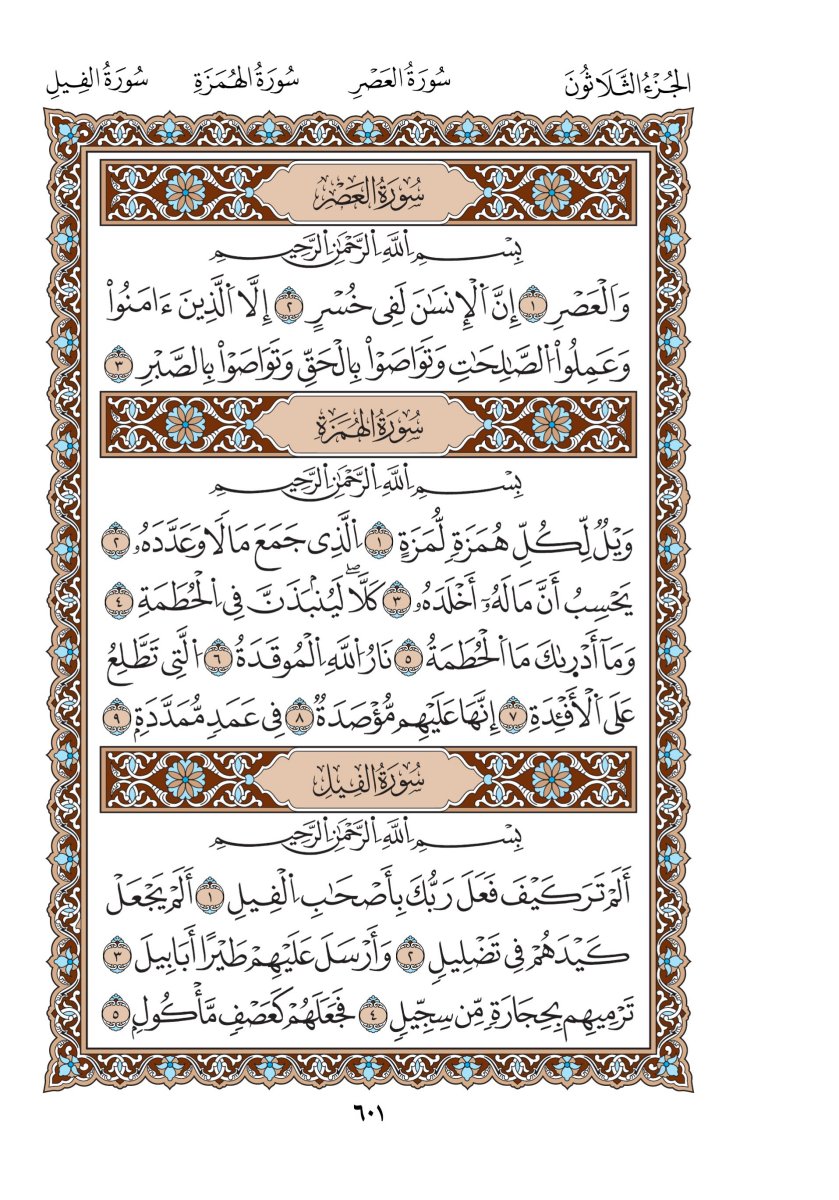 الجُزْءُ الثَّلَاثُونَ سُورَةُ العَصْرِ سُورَةُ الهُمَزَةِ سُورَةُ الفِيلِ
سُورَةُ العَصْرِ
بِسْمِ اِللَّهِ اِلرَّحْمَٰنِ اِلرَّحِيمِ
وَاَلْعَصْرِ ١ إِنَّ اَلْإِنسَٰنَ لَفِى خُسْرٍ ٢ إِلَّا اَلَّذِينَ ءَامَنُواْ
وَعَمِلُواْ اُلصَّٰلِحَٰتِ وَتَوَاصَوْاْ بِالْحَقِّ وَتَوَاصَوْاْ بِالصَّبْرِ ٣
سُورَةُ الهُمَزَةِ
بِسْمِ اِللَّهِ اِلرَّحْمَٰنِ اِلرَّحِيمِ
وَيْلٌ لِّكُلِّ هُمَزَةٍ لُّمَزَةٍ ١ اِلَّذِى جَمَعَ مَالًا وَعَدَّدَهُۥ ٢
يَحْسِبُ أَنَّ مَالَهُۥٓ أَخْلَدَهُۥ ٣ كَلَّاۖ لَيُنۢبَذَنَّ فِى اِلْحُطَمَةِ ٤
وَمَآ أَدْرىٰكَ مَا اَلْحُطَمَةُ ٥ نَارُ اُللَّهِ اِلْمُوقَدَةُ ٦ اُلَّتِى تَطَّلِعُ
عَلَى اَلْأَفْـِٔدَةِ ٧ إِنَّهَا عَلَيْهِم مُّؤْصَدَةٌ ٨ فِى عَمَدٍ مُّمَدَّدَةٍۭ ٩
سُورَةُ الفِيلِ
بِسْمِ اِللَّهِ اِلرَّحْمَٰنِ اِلرَّحِيمِ
أَلَمْ تَرَ كَيْفَ فَعَلَ رَبُّكَ بِأَصْحَٰبِ اِلْفِيلِ ١ أَلَمْ يَجْعَلْ
كَيْدَهُمْ فِى تَضْلِيلٍ ٢ وَأَرْسَلَ عَلَيْهِمْ طَيْرًا أَبَابِيلَ ٣
تَرْمِيهِم بِحِجَارَةٍ مِّن سِجِّيلٍ ٤ فَجَعَلَهُمْ كَعَصْفٍ مَّأْكُولٍۭ ٥
٦٠١